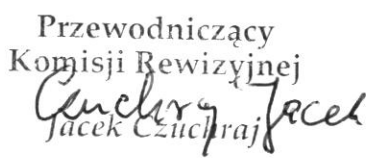 Przewodniczący
Komisji Rewizyjnej
Czuchraj Jacek
Jacek Czuchraj